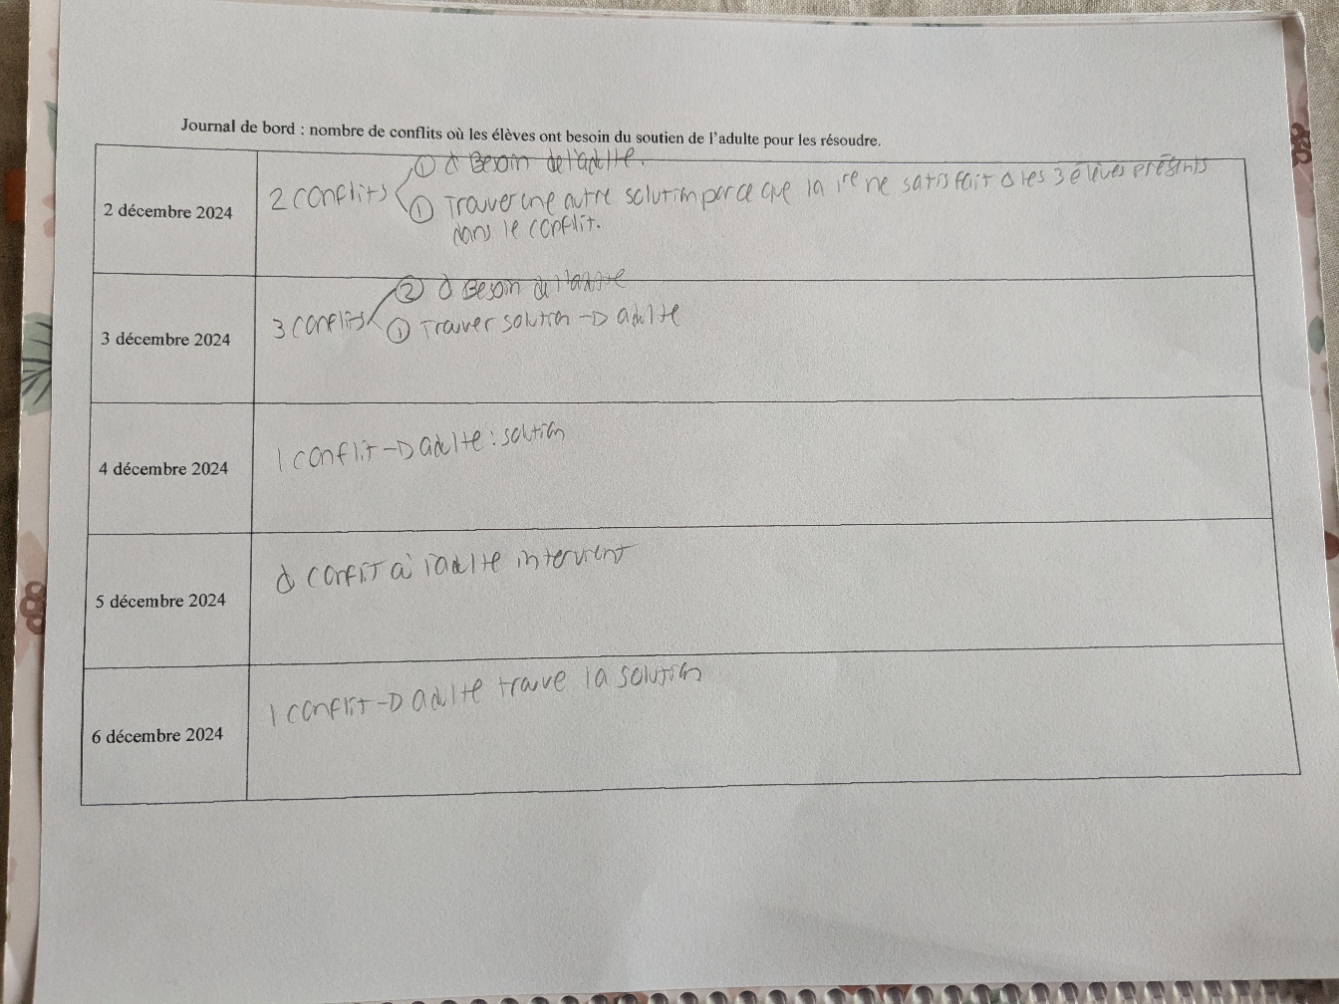 Journal de bord : nombre de conflits où les élèves ont besoin du soutien de l'adulte pour les résoudre.
2 décembre 2024
2 conflits
① Ø Besoin de l'adulte.
① Trouver une autre solution parce que la 1re ne satisfait Ø les 3 élèves présents
dans le conflit.
3 décembre 2024
3 conflits
② Ø Besoin de l'adulte
① Trouver solution → adulte
4 décembre 2024
1 conflit → adulte : solution
5 décembre 2024
Ø conflit où l'adulte intervient
6 décembre 2024
1 conflit → adulte trouve la solution